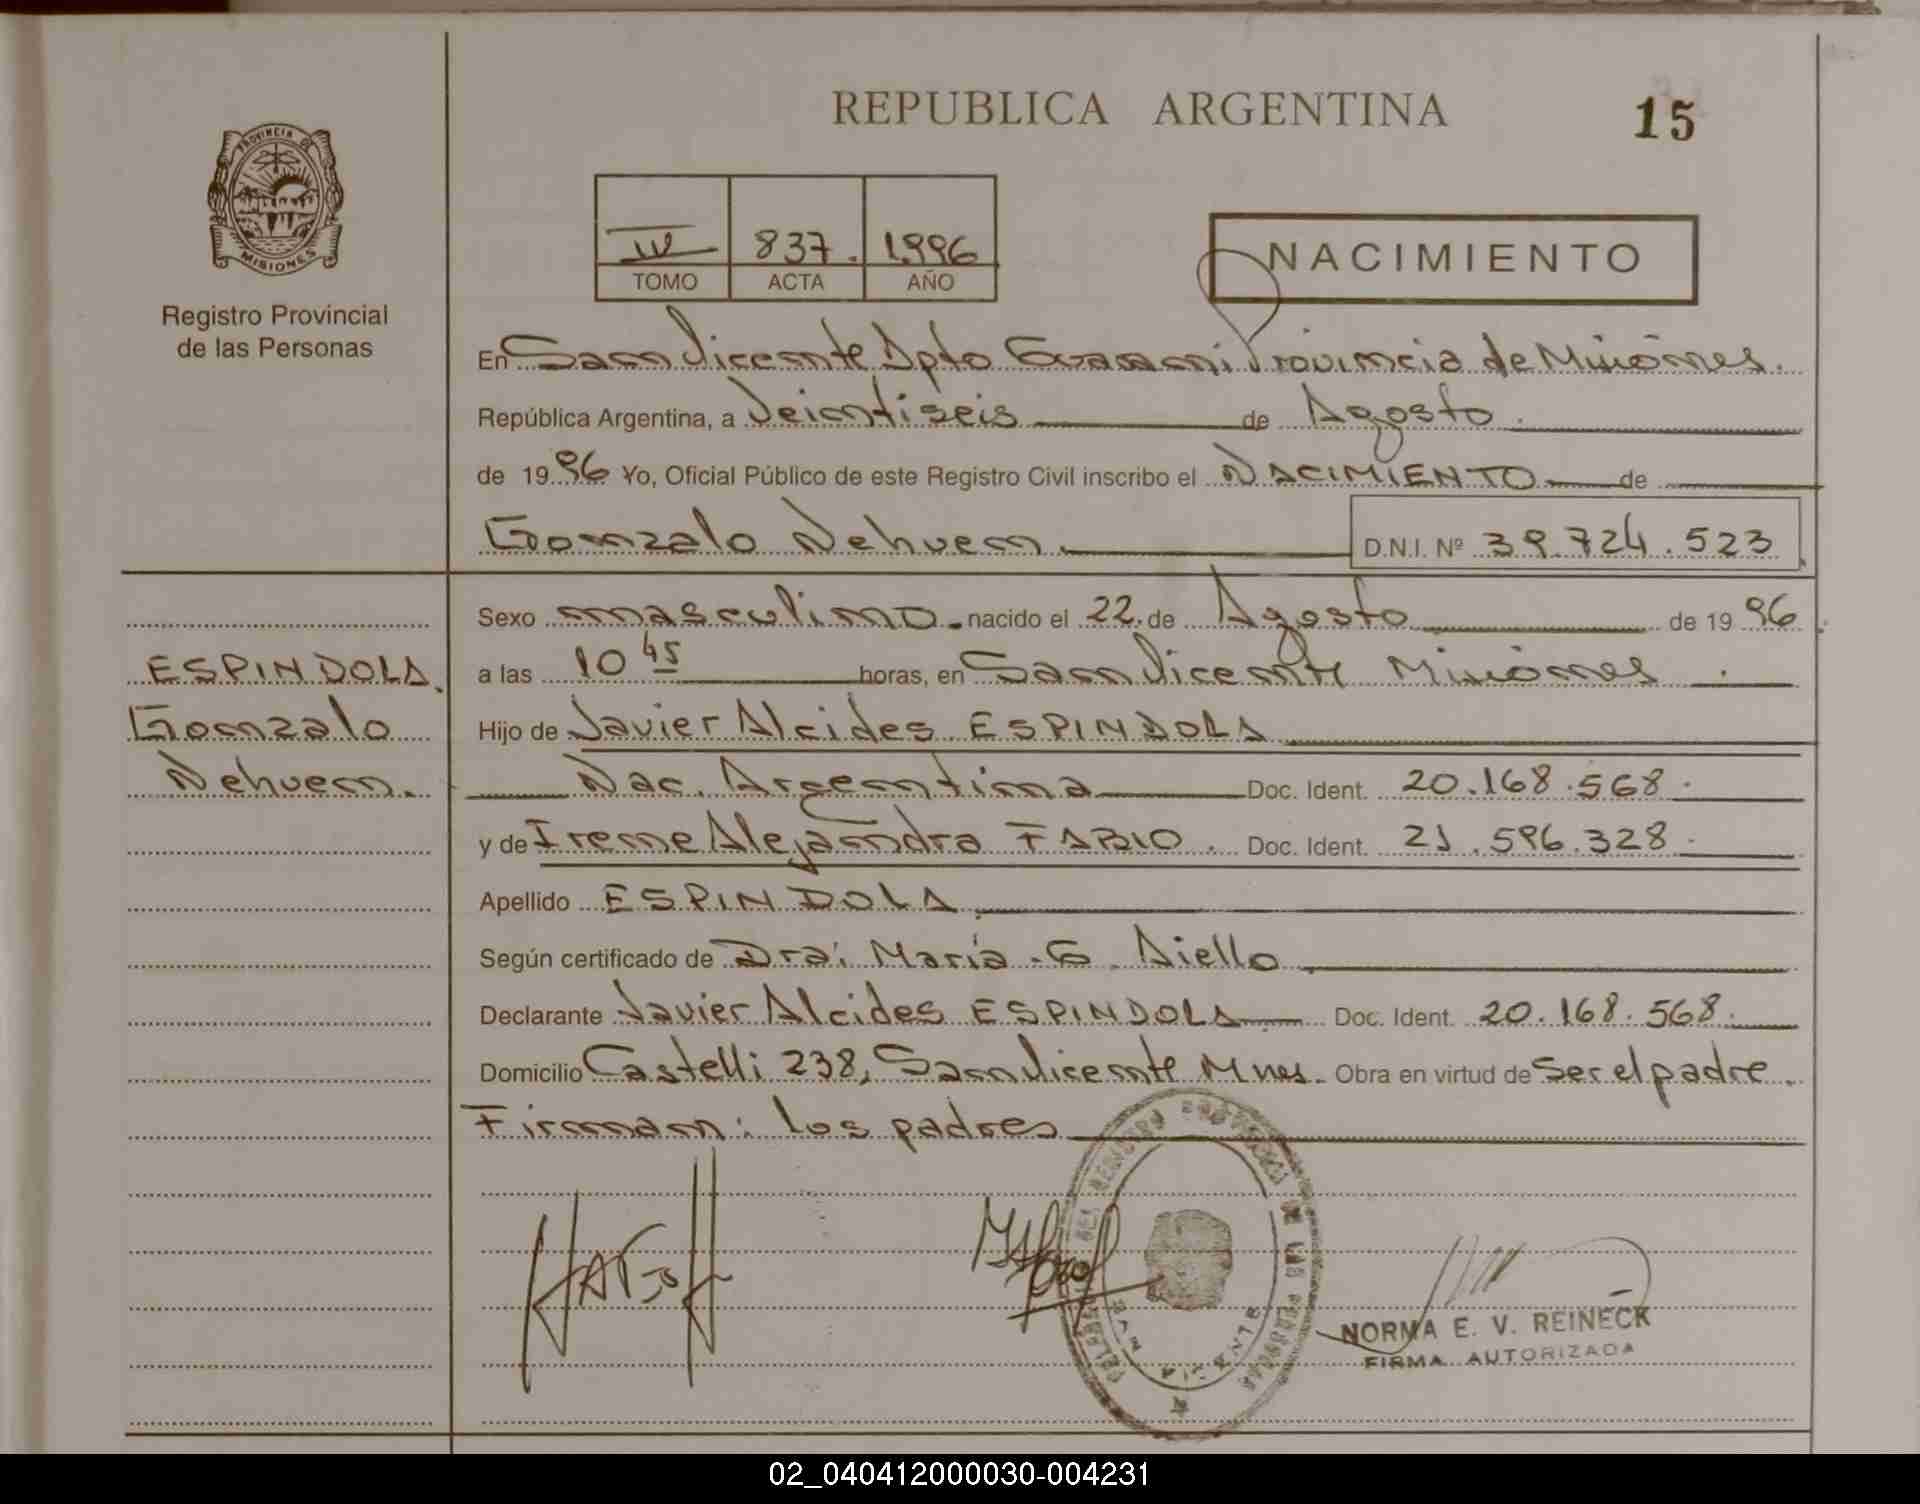 REPUBLICA ARGENTINA
15
PROVINCIA DE
MISIONES
Registro Provincial
de las Personas
IV 837. 1.996
TOMO ACTA AÑO
NACIMIENTO
En San Vicente Dpto Guarani Provincia de Misiones.
República Argentina, a Veintiseis de Agosto.
de 1996 Yo, Oficial Público de este Registro Civil inscribo el NACIMIENTO de
Gonzalo Nehuen. D.N.I. Nº 39.724.523
Sexo masculino. nacido el 22. de Agosto de 1996
a las 10 45 horas, en San Vicente Misiones.
Hijo de Javier Alcides ESPINDOLA
Nac. Argentina Doc. Ident. 20.168.568.
y de Irene Alejandra FABIO. Doc. Ident. 21.596.328.
Apellido ESPINDOLA.
Según certificado de Dra: María .G. Aiello.
Declarante Javier Alcides ESPINDOLA Doc. Ident. 20.168.568.
Domicilio Castelli 238, San Vicente Mnes. Obra en virtud de Ser el padre.
Firman: los padres
ESPINDOLA.
Gonzalo
Nehuen.
DEL REGISTRO PROVINCIAL DE LAS PERSONAS
SAN VICENTE
NORMA E. V. REINECK
FIRMA AUTORIZADA
02_040412000030-004231